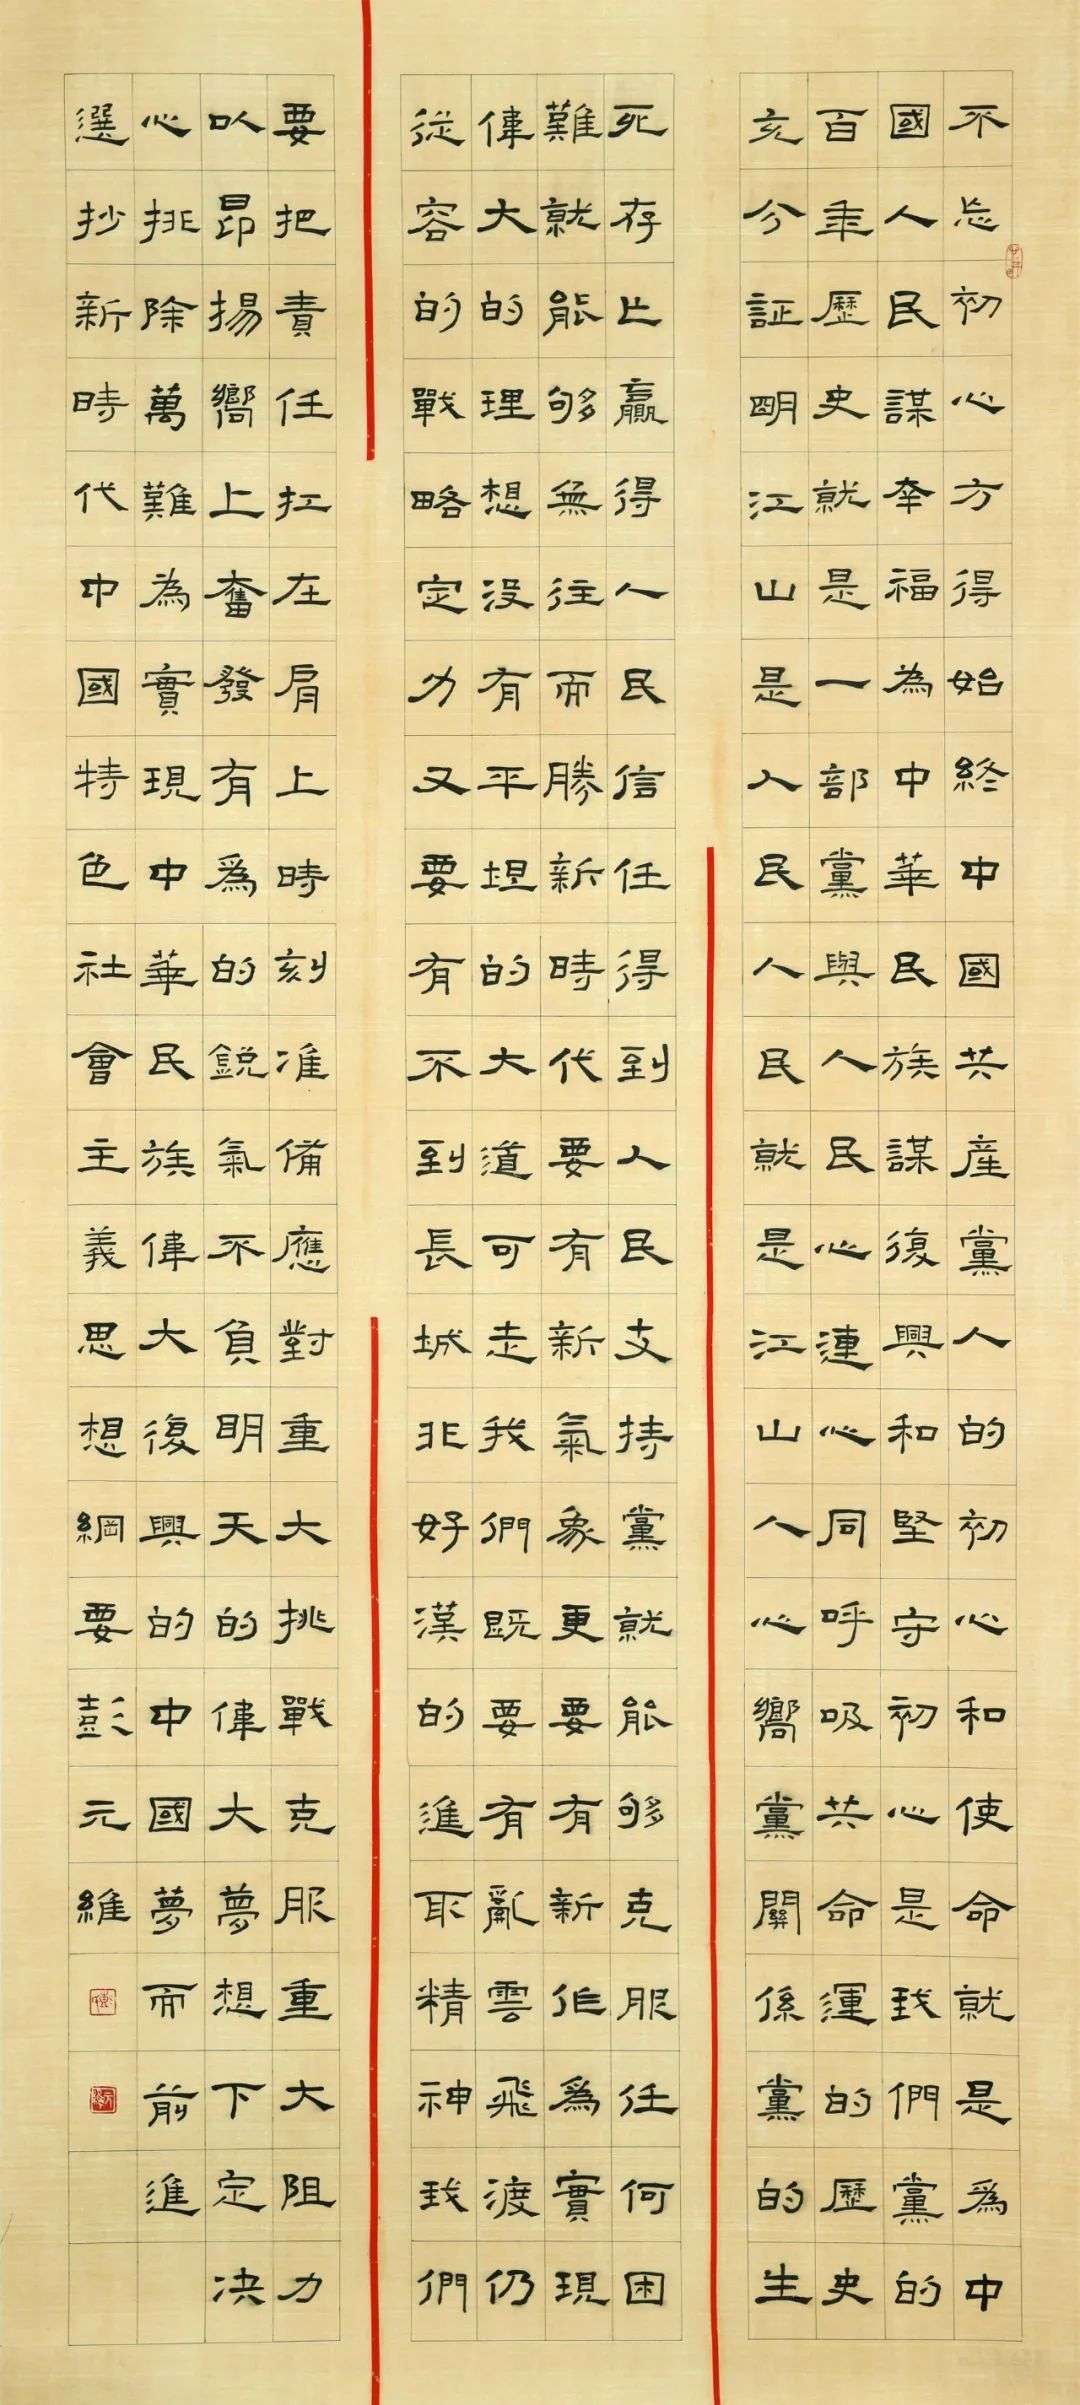 不忘初心方得始終中國共産黨人的初心和使命就是爲中
國人民謀幸福為中華民族謀復興和堅守初心是我們黨的
百年歷史就是一部黨與人民心連心同呼吸共命運的歷史
充分証明江山是人民人民就是江山人心嚮黨關係黨的生
死存亡贏得人民信任得到人民支持黨就能够克服任何困
難就能够無往而勝新時代要有新氣象更要有新作爲實現
偉大的理想没有平坦的大道可走我們既要有亂雲飛渡仍
從容的戰略定力又要有不到長城非好漢的進取精神我們
要把責任扛在肩上時刻准備應對重大挑戰克服重大阻力
以昂揚嚮上奮發有爲的鋭氣不負明天的偉大夢想下定决
心排除萬難為實現中華民族偉大復興的中國夢而前進
選抄新時代中國特色社會主義思想綱要彭元維